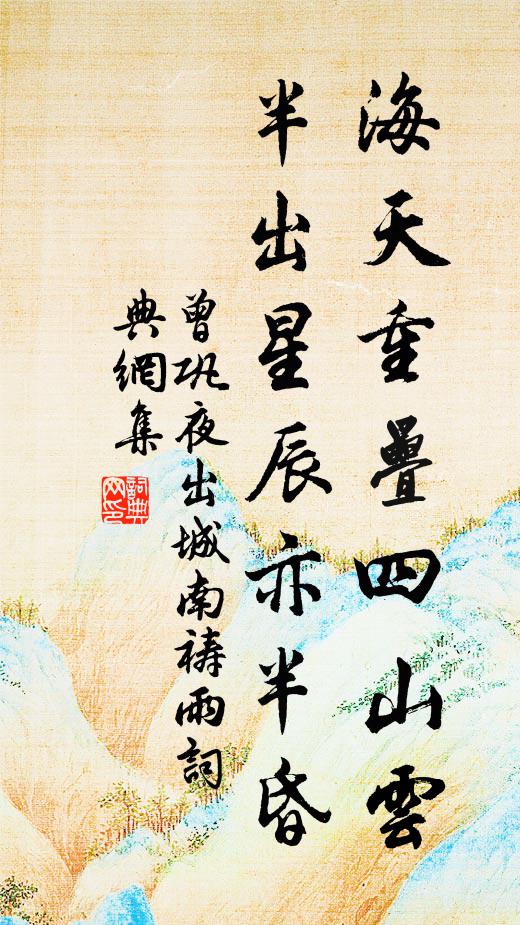 海天重疊四山雲
半出星辰亦半昏
曾巩夜出城南禱雨詞
典網集
詞典
网印